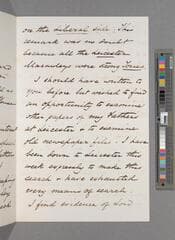 on the Liberal side. This
remark was no doubt
because all the Leicester
Macaulays were strong Tories.
I should have written to
you before but wished to find
an opportunity to examine
other papers of my Father's
at Leicester & to examine
old newspaper files. I have
been down to Leicester this
week expressly to make the
search & have exhausted
every means of search.
I find evidence of Lord